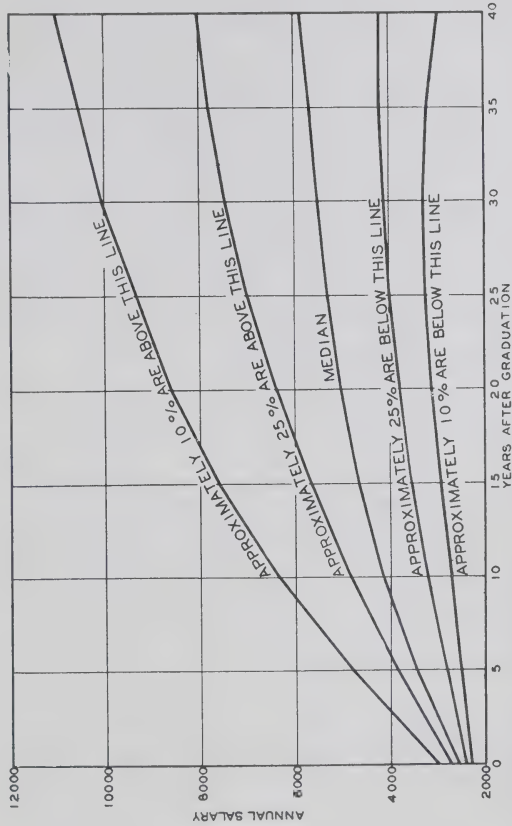 12000
10000
8000
6000
4000
2000
ANNUAL SALARY
APPROXIMATELY 10% ARE ABOVE THIS LINE
APPROXIMATELY 25% ARE ABOVE THIS LINE
MEDIAN
APPROXIMATELY 25% ARE BELOW THIS LINE
APPROXIMATELY 10% ARE BELOW THIS LINE
0 5 10 15 20 25 30 35 40
YEARS AFTER GRADUATION